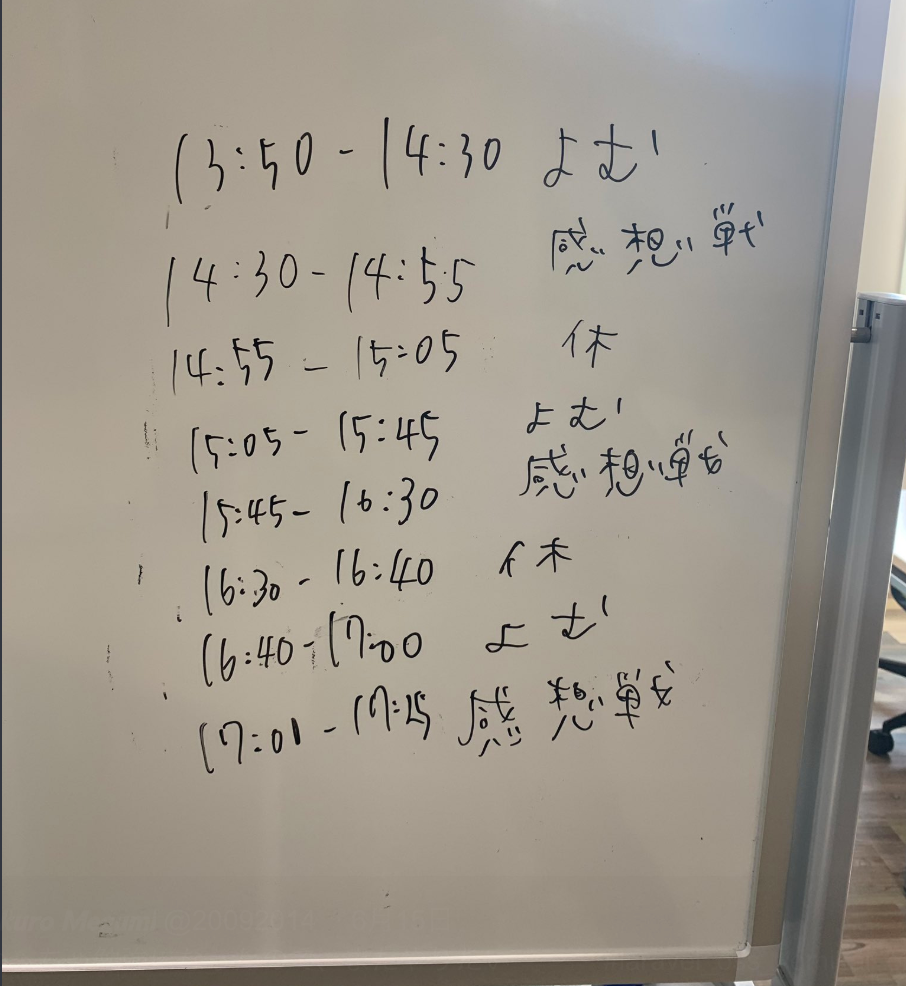 13:50 - 14:30 よむ
14:30 - 14:55 感想戦
14:55 - 15:05 休
15:05 - 15:45 よむ
15:45 - 16:30 感想戦
16:30 - 16:40 休
16:40 - 17:00 よむ
17:01 - 17:25 感想戦